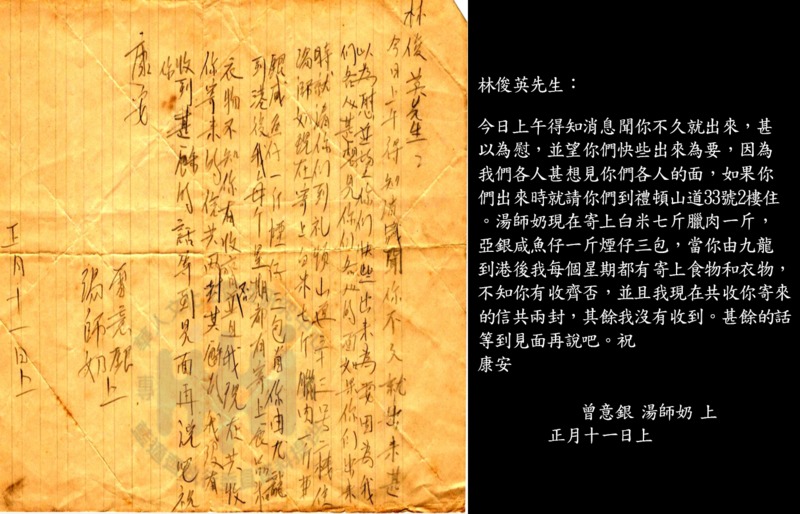 林俊英先生：
今日上午得知消息聞你不久就出來甚
以為慰並望你们快些出來為要因為我
们各人甚想見你们各人的面如果你们出來
時就請你们到礼頓山道三三号二樓住
湯師奶現在寄上白米七斤臘肉一斤亚
銀咸魚仔一斤煙仔三包當你由九龍
到港後我每个星期都有寄上食品和
衣物不知你有收齊否並且我現在共收
你寄來的信共兩封其餘我沒有
收到甚餘的話等到見面再說吧祝
你
康安
曾意銀上
湯師奶
正月十一日上
林俊英先生：
今日上午得知消息聞你不久就出來，甚
以為慰，並望你們快些出來為要，因為
我們各人甚想見你們各人的面，如果你
們出來時就請你們到禮頓山道33號2樓住
。湯師奶現在寄上白米七斤臘肉一斤，
亞銀咸魚仔一斤煙仔三包，當你由九龍
到港後我每個星期都有寄上食物和衣物，
不知你有收齊否，並且我現在共收你寄來
的信共兩封，其餘我沒有收到。甚餘的話
等到見面再說吧。祝
康安
曾意銀 湯師奶 上
正月十一日上